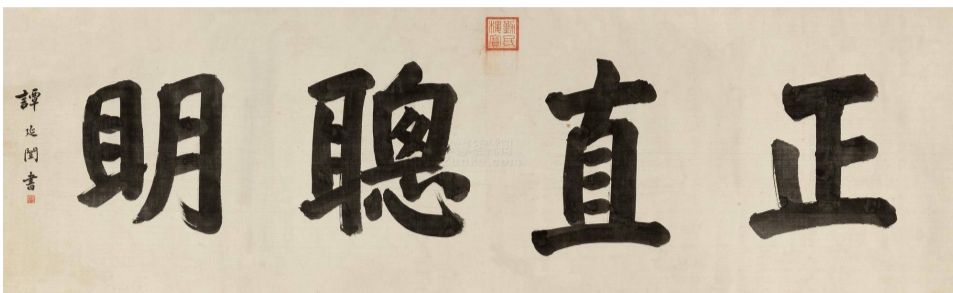 正直聰明
譚延闓書